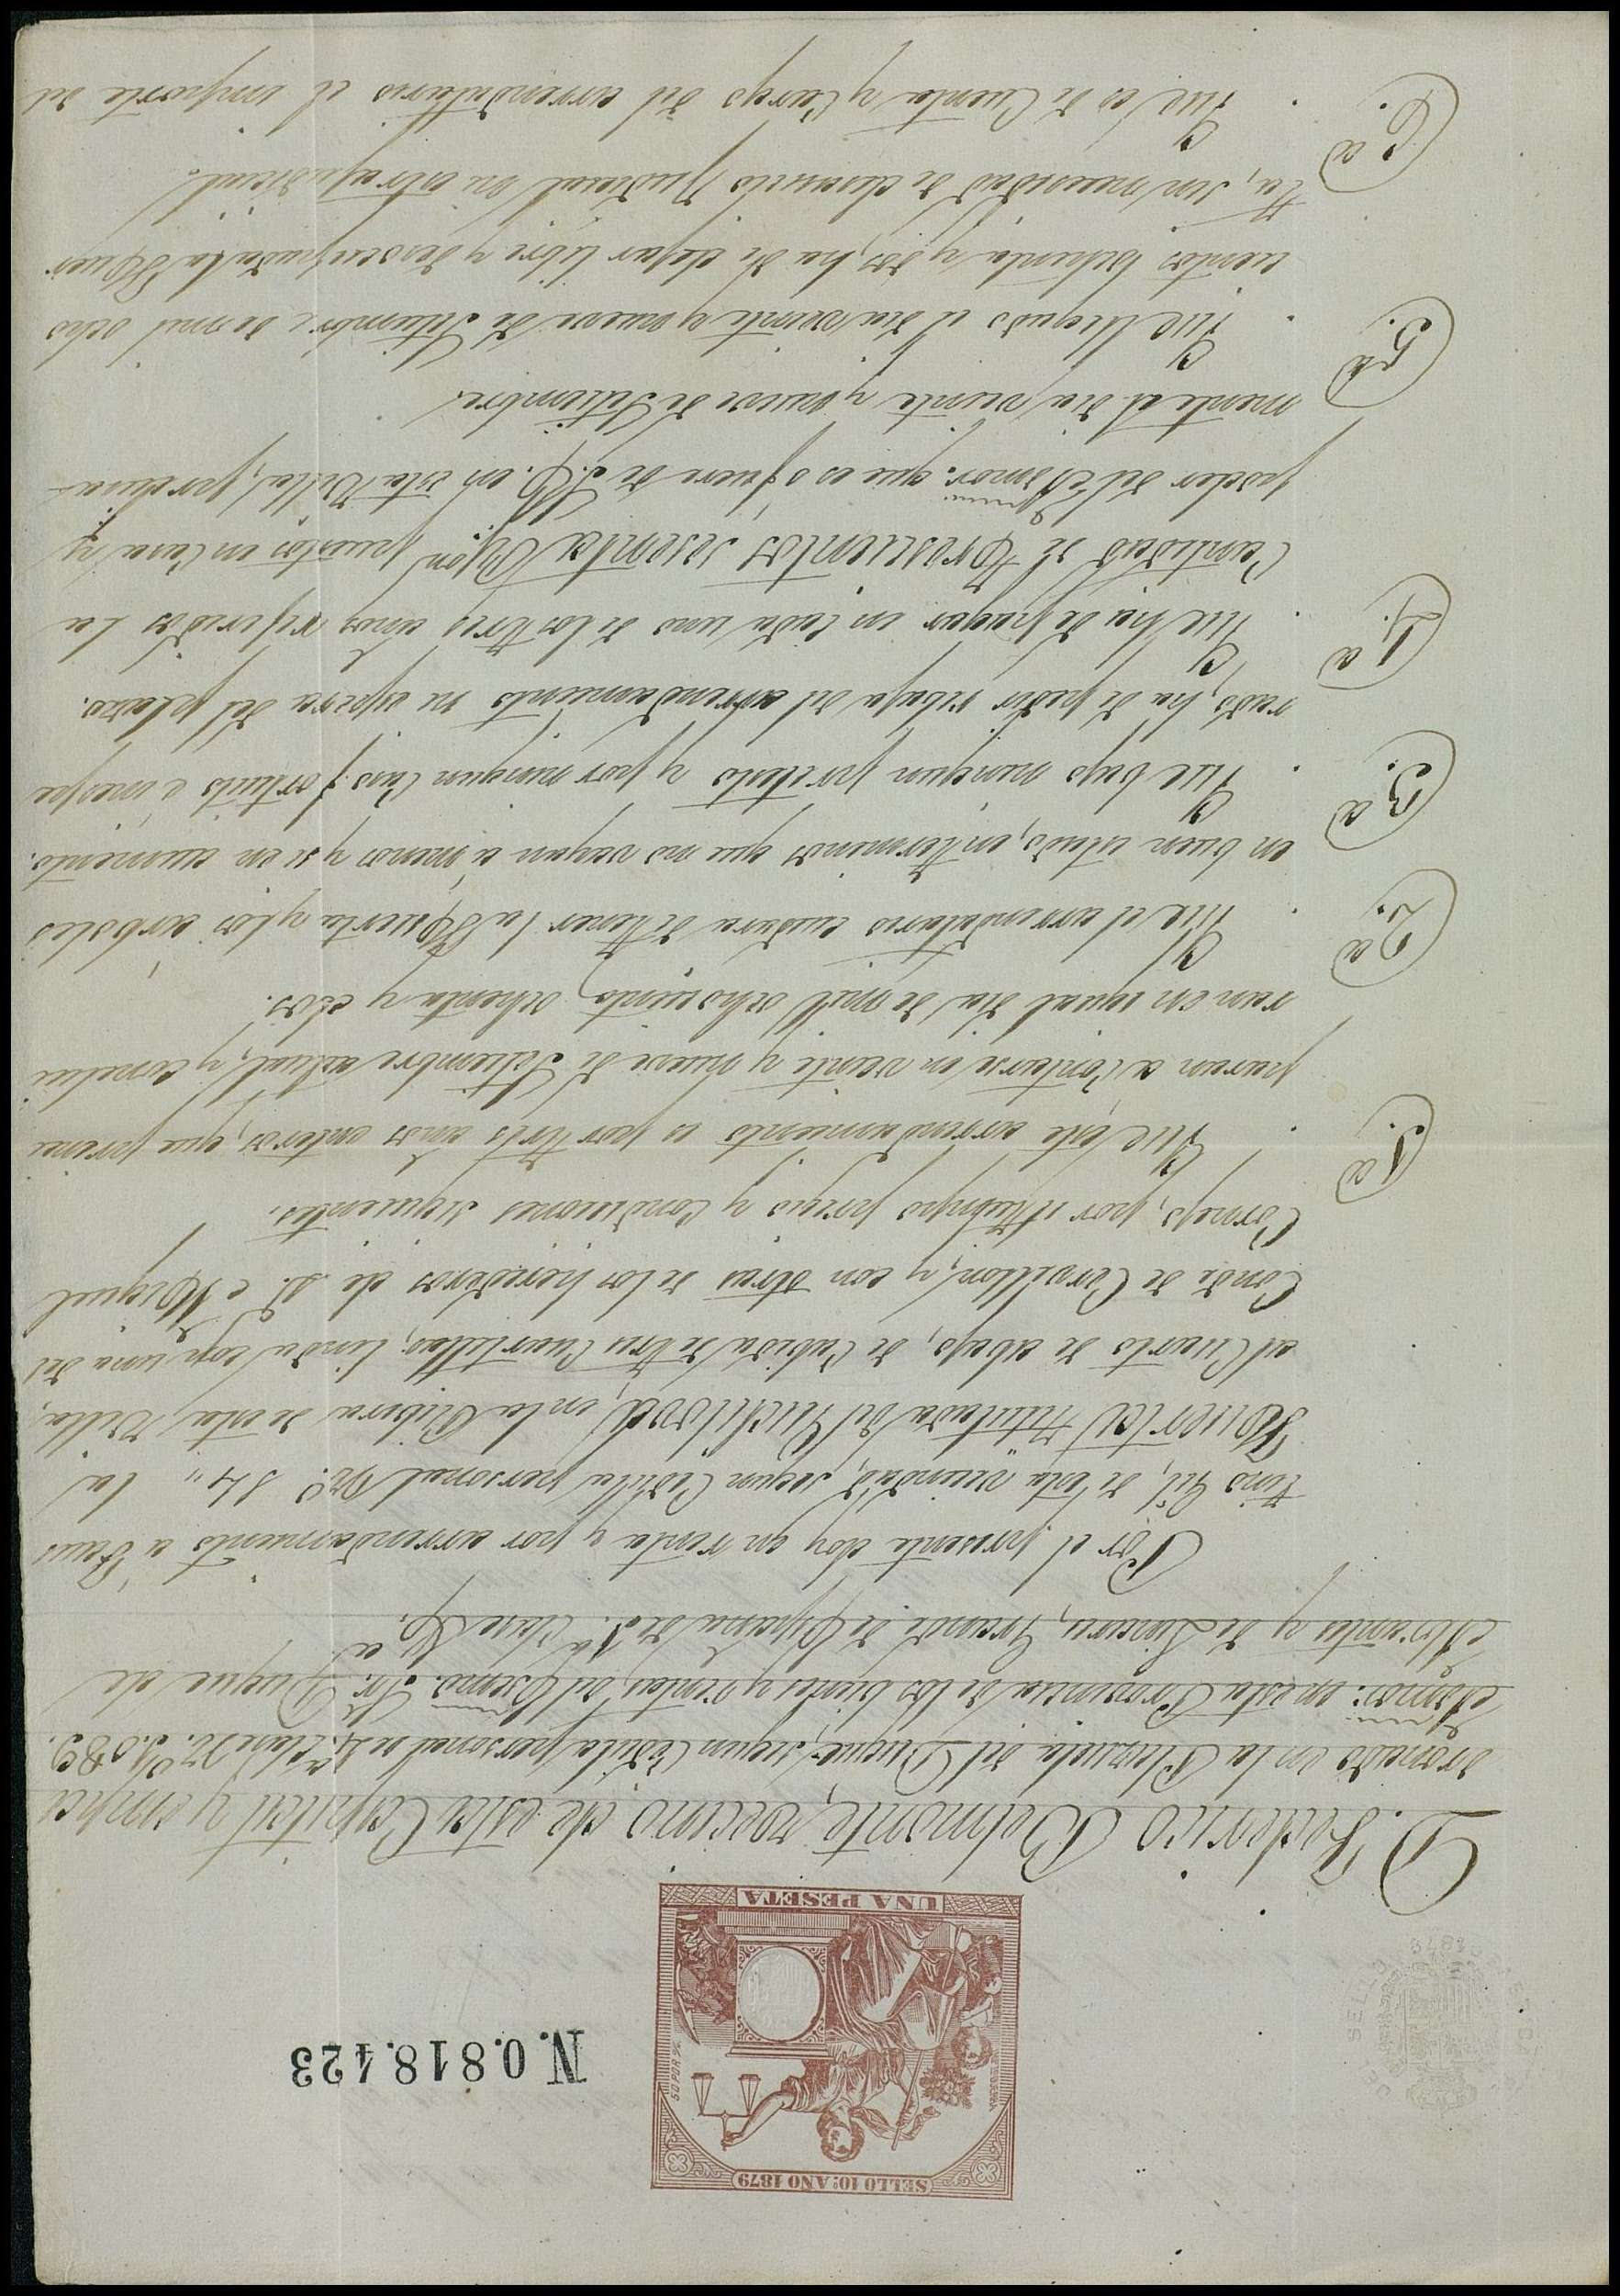 SELLO 10º AÑO 1879
N. 0.818.423
UNA PESETA
D. Federico Belmonte, vecino de esta Capital y empa
dronado en la Plazuela del Duque, segun Cédula personal de 4ª Clase Nº 1.089.
Admor: en esta Provincia de los bienes y rentas del Excmo. Sr. Duque de
Abrantes y de Linares, Grande de España de 1ª Clase &ª
Por el presente doy en renta y por arrendamiento á Faus
tino Gil, de esta vecindad, segun Cédula personal Nº 34,, la
Huerta titulada del en la Ribera de esta Villa,
al Cuarto de abajo, de Cabida de tres Cuartillas; linda con una del
Conde de Corvillon, y con otras de los herederos de D. Miguel
Cornejo, por el tiempo precio y Condiciones siguientes.
1ª. Que este arrendamiento es por tres años enteros, que princi
piaran a Contarse en veinte y nueve de Setiembre actual, y conclui
ran en igual dia de mil ochocientos ochenta y dos.
2ª. Que el arrendatario cuidará de tener la Huerta y los arboles
en buen estado, en terminos que no vayan á menos y si en aumento.
3ª. Que bajo ningun pretesto y por ningun Caso fortuito é inespe
rado, ha de pedir rebaja del arrendamiento ni espera del plazo.
4ª. Que ha de pagar en Cada uno de los tres años referidos la
Cantidad de trescientos sesenta R.s von puestos en Casa y
poder del Admor: que es ó fuere de S.E. en esta Villa, precisa-
mente el dia veinte y nueve de Setiembre.
5ª. Que llegado el dia veinte y nueve de Setiembre de mil ocho
cientos ochenta y dos, ha de dejar libre y desocupada la Huer
ta, sin necesidad de desaucio Judicial ni extrajudicial.
6ª. Que es de Cuenta y Cargo del arrendatario el importe del